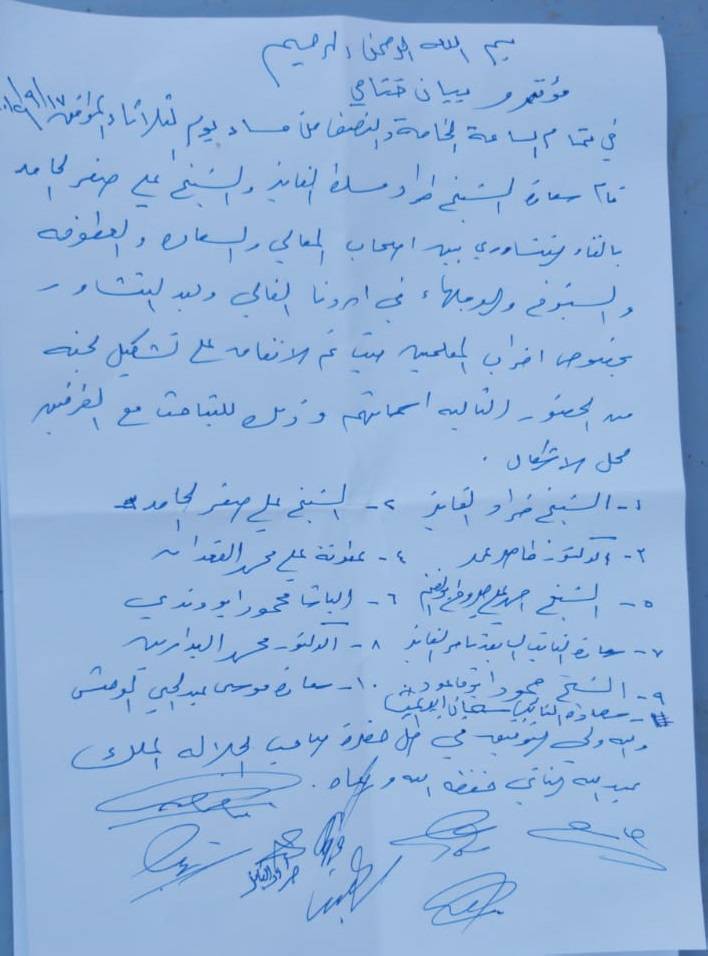 بسم الله الرحمن الرحيم
مؤتمر و بيان ختامي
في تمام الساعة الخامسة والنصف من مساء يوم الثلاثاء الموافق ١٧/٩/٢٠١٩
قام سعادة الشيخ طراد مسلط الفايز والشيخ علي صقر الحامد
بالقاء تشاوري بين اصحاب المعالي والسعادة والعطوفه
والشيوخ والوجهاء في اردننا الغالي وبعد التشاور
بخصوص اضراب المعلمين حيث تم الاتفاق على تشكيل لجنه
من الحضور التاليه اسمائهم وذلك للتباحث مع الطرفين
محل الاشكال .
١- الشيخ طراد الفايز ٢- الشيخ علي صقر الحامد
٣- الدكتور ٤- عطوفة علي محمد
٥- الشيخ ٦- الباشا محمود ابو وندي
٧- سعادة النائب السابق الفايز ٨- الدكتور محمد البدارين
٩- الشيخ محمود ١٠- سعادة موسى عبد الحي
١١- سعادة النائب
والله ولي التوفيق في ظل حضرة صاحب الجلاله الملك
عبد الله الثاني حفظه الله و رعاه .
طراد الفايز